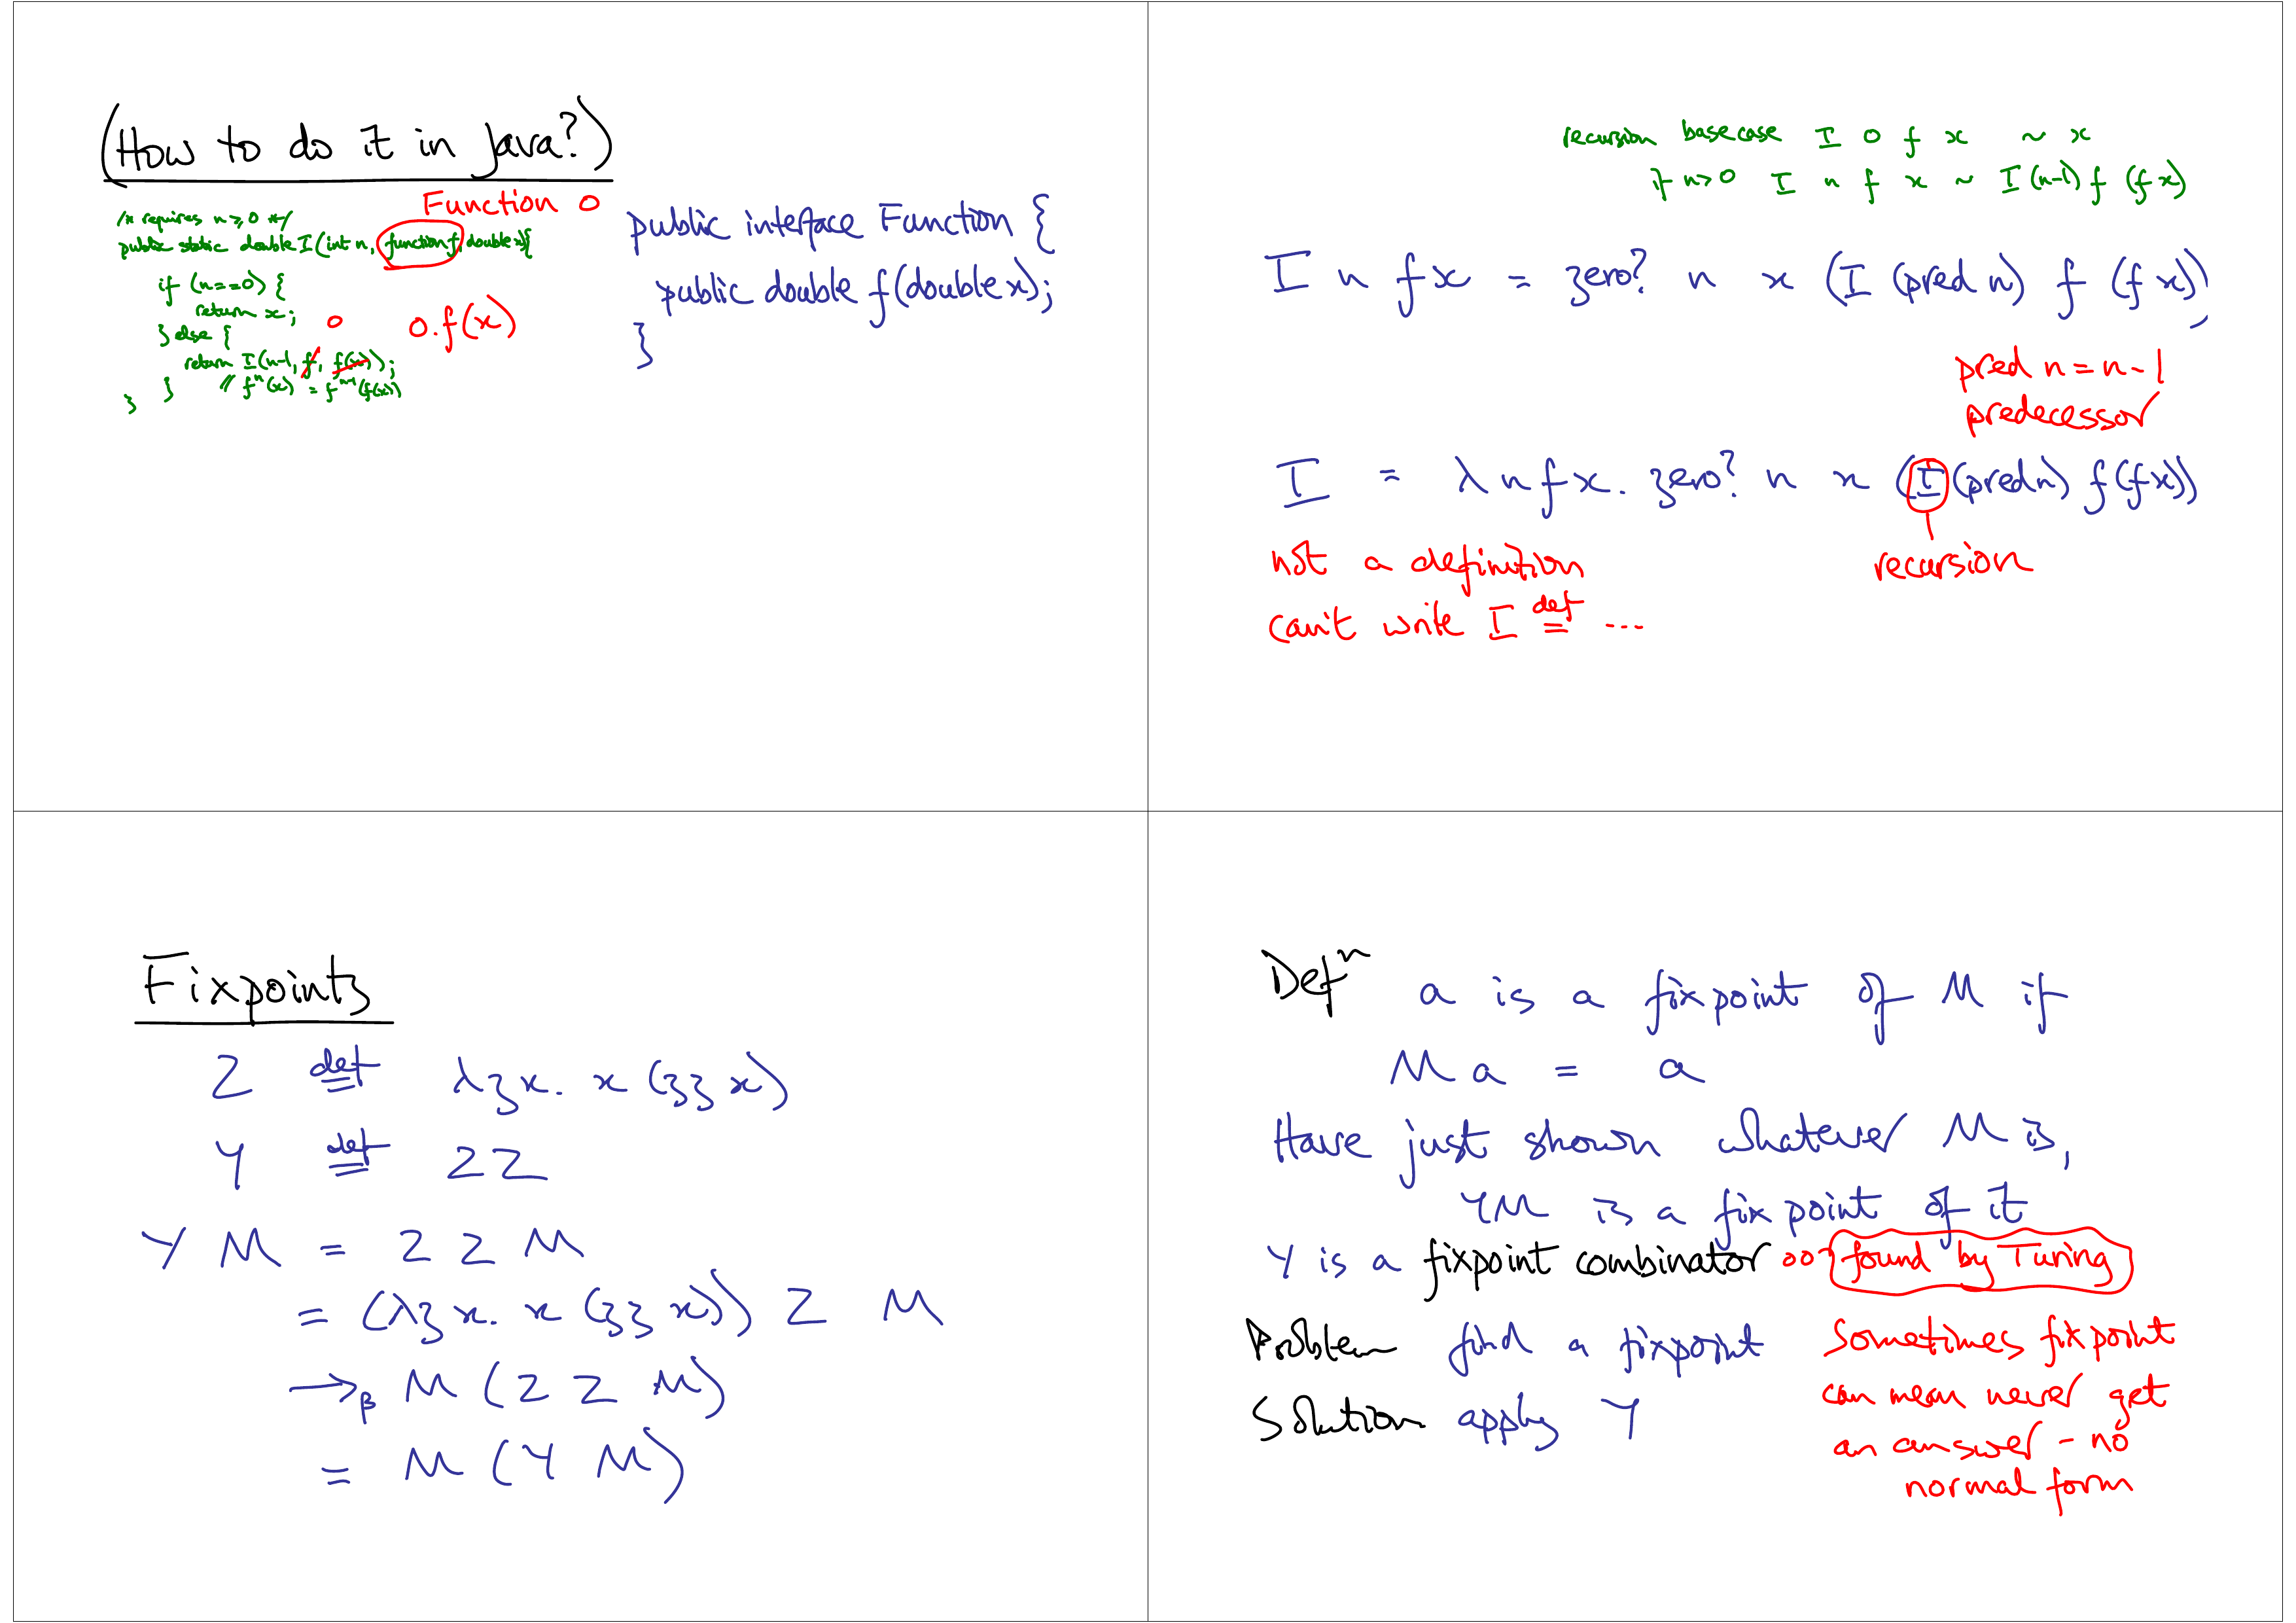 (How to do it in Java?)
Function o
/* requires n ≥ 0 */
public static double I(int n, function f, double x){
if (n==0) {
return x;
} else {
return I(n-1, f, f(x));
// fⁿ(x) = fⁿ⁻¹(f(x))
}
}
o
o.f(x)
public interface Function {
public double f(double x);
}
recursion base case I 0 f x ~ x
if n>0 I n f x ~ I (n-1) f (f x)
I n f x = zero? n x (I (pred n) f (f x))
pred n = n-1
predecessor
I = λ n f x. zero? n x (I (pred n) f (f x))
recursion
not a definition
can't write I def= ...
Fixpoints
Z def= λzx. x (zzx)
Y def= ZZ
Y M = Z Z M
= (λzx. x (zzx)) Z M
→β M (Z Z M)
= M (Y M)
Defⁿ a is a fixpoint of M if
M a = a
Have just shown whatever M is,
YM is a fixpoint of it
Y is a fixpoint combinator found by Turing
Problem find a fixpoint
Solution apply Y
Sometimes fixpoint
can mean never get
an answer - no
normal form